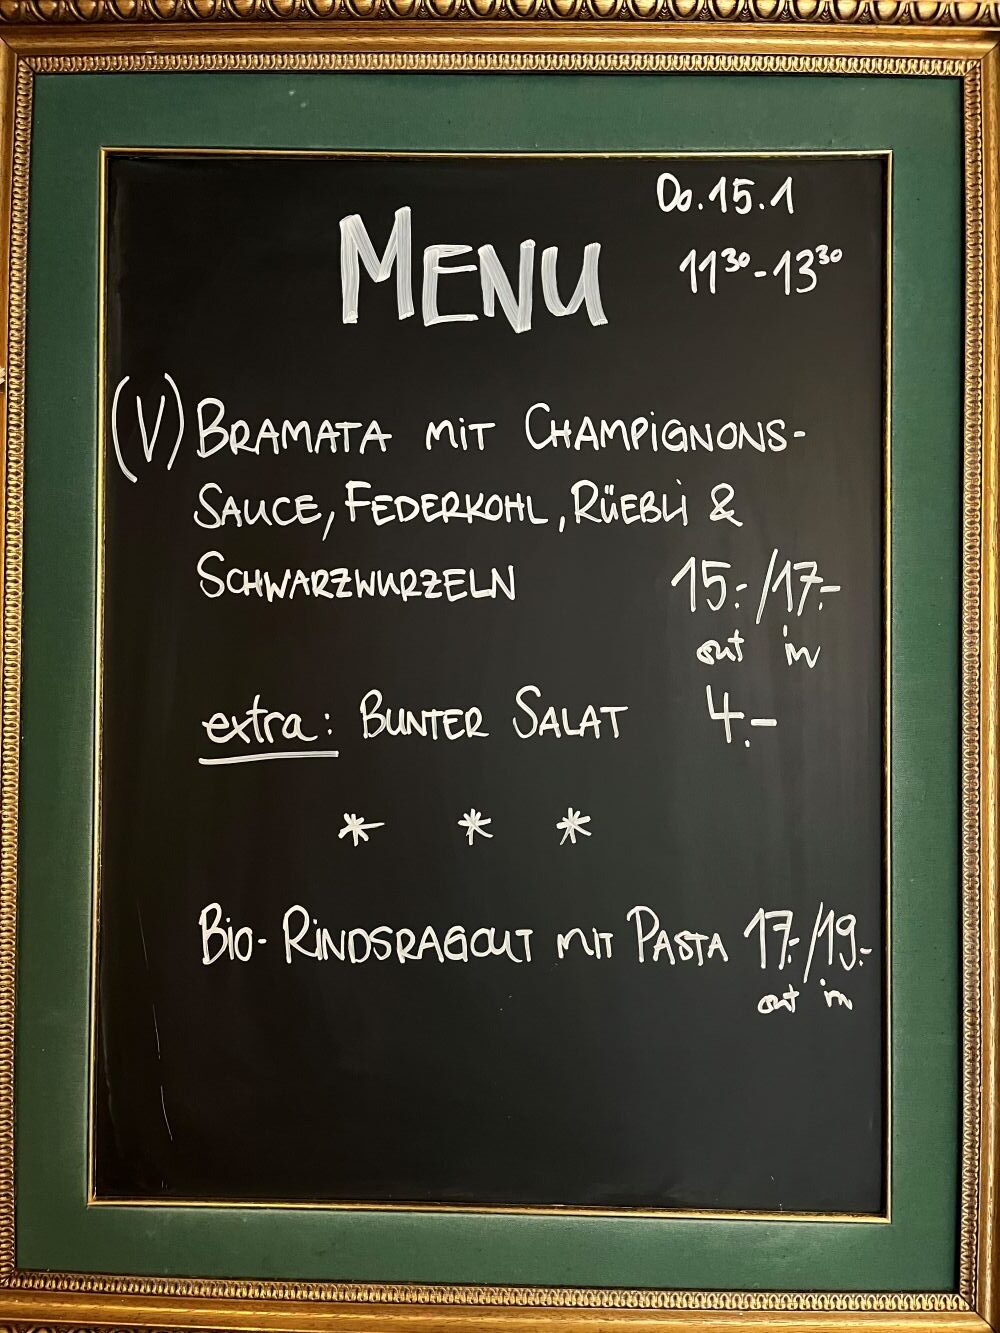 Do. 15.1
MENU
11³⁰-13³⁰
(V) BRAMATA MIT CHAMPIGNONS-
SAUCE, FEDERKOHL, RÜEBLI &
SCHWARZWURZELN 15.-/17.-
out in
extra: BUNTER SALAT 4.-
* * *
BIO-RINDSRAGOUT MIT PASTA 17.-/19.-
out in